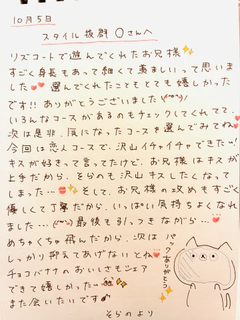 10月5日
スタイル抜群 Oさんへ
リズコートで遊んでくれたお兄様✨
すごく身長もあって細くて羨ましいって思いまし
た❤️選んでくれたこともとても嬉しかった
です!!ありがとうございました(*^^*)
いろんなコースがあるのもチェックしてくれてて、
次は是非、気になったコースを選んでみてね❤️
今回は恋人コースで、沢山イチャイチャできたー!
キスが好きって言ってたけど、お兄様はキスが
上手だから、そらのも沢山キスしたくなって
しまった…💋そして、お兄様の攻めもすごく
優しくて丁寧だから、いっぱい気持ちよくなれ
ました…(*^^*)最後も引っつきながら…❤️
めちゃくちゃ飛んだから、次は
しっかり抑えてあげないとね❤️
チョコバナナのおいしさもシェア
できて嬉しかったー✨
また会いたいです
そらのより
パックありがとう